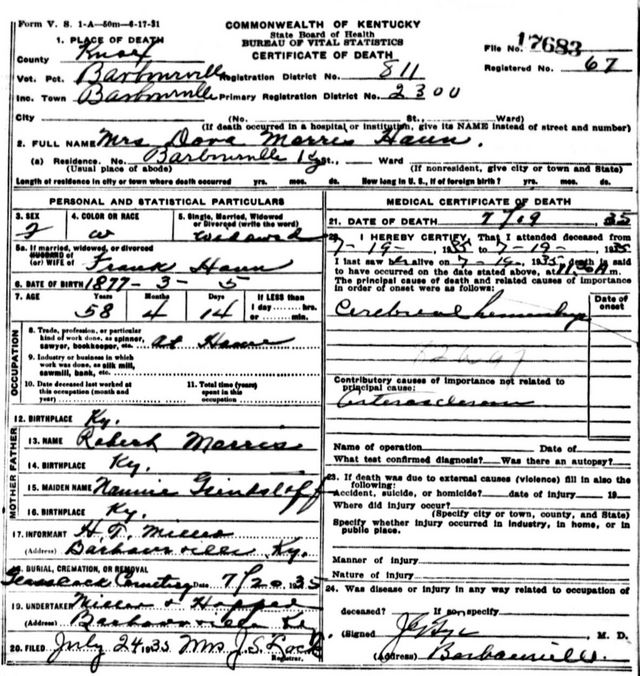 Form V. S. 1-A—50m—6-17-31
COMMONWEALTH OF KENTUCKY
State Board of Health
BUREAU OF VITAL STATISTICS
CERTIFICATE OF DEATH
File No. 17683
Registered No. 67
1. PLACE OF DEATH
County Knox
Vot. Pct. Barbourville Registration District No. 811
Inc. Town Barbourville Primary Registration District No. 2300
City (No. St., Ward)
(If death occurred in a hospital or institution, give its NAME instead of street and number)
2. FULL NAME Mrs Dora Morris Haun.
(a) Residence. No. Barbourville Ky St., Ward
(Usual place of abode) (If nonresident, give city or town and State)
Length of residence in city or town where death occurred yrs. mos. ds. How long in U. S., if of foreign birth? yrs. mos. ds.
PERSONAL AND STATISTICAL PARTICULARS
3. SEX
F
4. COLOR OR RACE
W
5. Single, Married, Widowed
or Divorced (write the word)
Widowed
5a. If married, widowed, or divorced
HUSBAND of
(or) WIFE of Frank Haun
6. DATE OF BIRTH 1877-3-5
7. AGE Years Months Days If LESS than
58 4 14 1 day hrs.
or min.
OCCUPATION
8. Trade, profession, or particular
kind of work done, as spinner,
sawyer, bookkeeper, etc. at Home
9. Industry or business in which
work was done, as silk mill,
sawmill, bank, etc.
10. Date deceased last worked at
this occupation (month and
year)
11. Total time (years)
spent in this
occupation
12. BIRTHPLACE Ky.
FATHER
13. NAME Robert Morris
14. BIRTHPLACE Ky.
MOTHER
15. MAIDEN NAME Nannie
16. BIRTHPLACE Ky.
17. INFORMANT H. T. Miller
(Address) Barbourville Ky.
18. BURIAL, CREMATION, OR REMOVAL
Cemetery Date 7/20 1935
19. UNDERTAKER Miller & Hopper
(Address) Barbourville Ky
20. FILED July 24 1935 Mrs J. S. Lock
Registrar.
MEDICAL CERTIFICATE OF DEATH
21. DATE OF DEATH 7/19 35
22. I HEREBY CERTIFY, That I attended deceased from
7-19-1935 7-19-1935
I last saw alive on 7-19-, 1935, death is said
to have occurred on the date stated above, at m.
The principal cause of death and related causes of importance
in order of onset were as follows:
Date of
onset
Cerebral hemorrhage
Contributory causes of importance not related to
principal cause:
Arterosclerosis
Name of operation Date of
What test confirmed diagnosis? Was there an autopsy?
23. If death was due to external causes (violence) fill in also the
following:
Accident, suicide, or homicide? date of injury 19
Where did injury occur?
(Specify city or town, county, and State)
Specify whether injury occurred in industry, in home, or in
public place.
Manner of injury
Nature of injury
24. Was disease or injury in any way related to occupation of
deceased? If so, specify
(Signed M. D.
(Address) Barbourville.